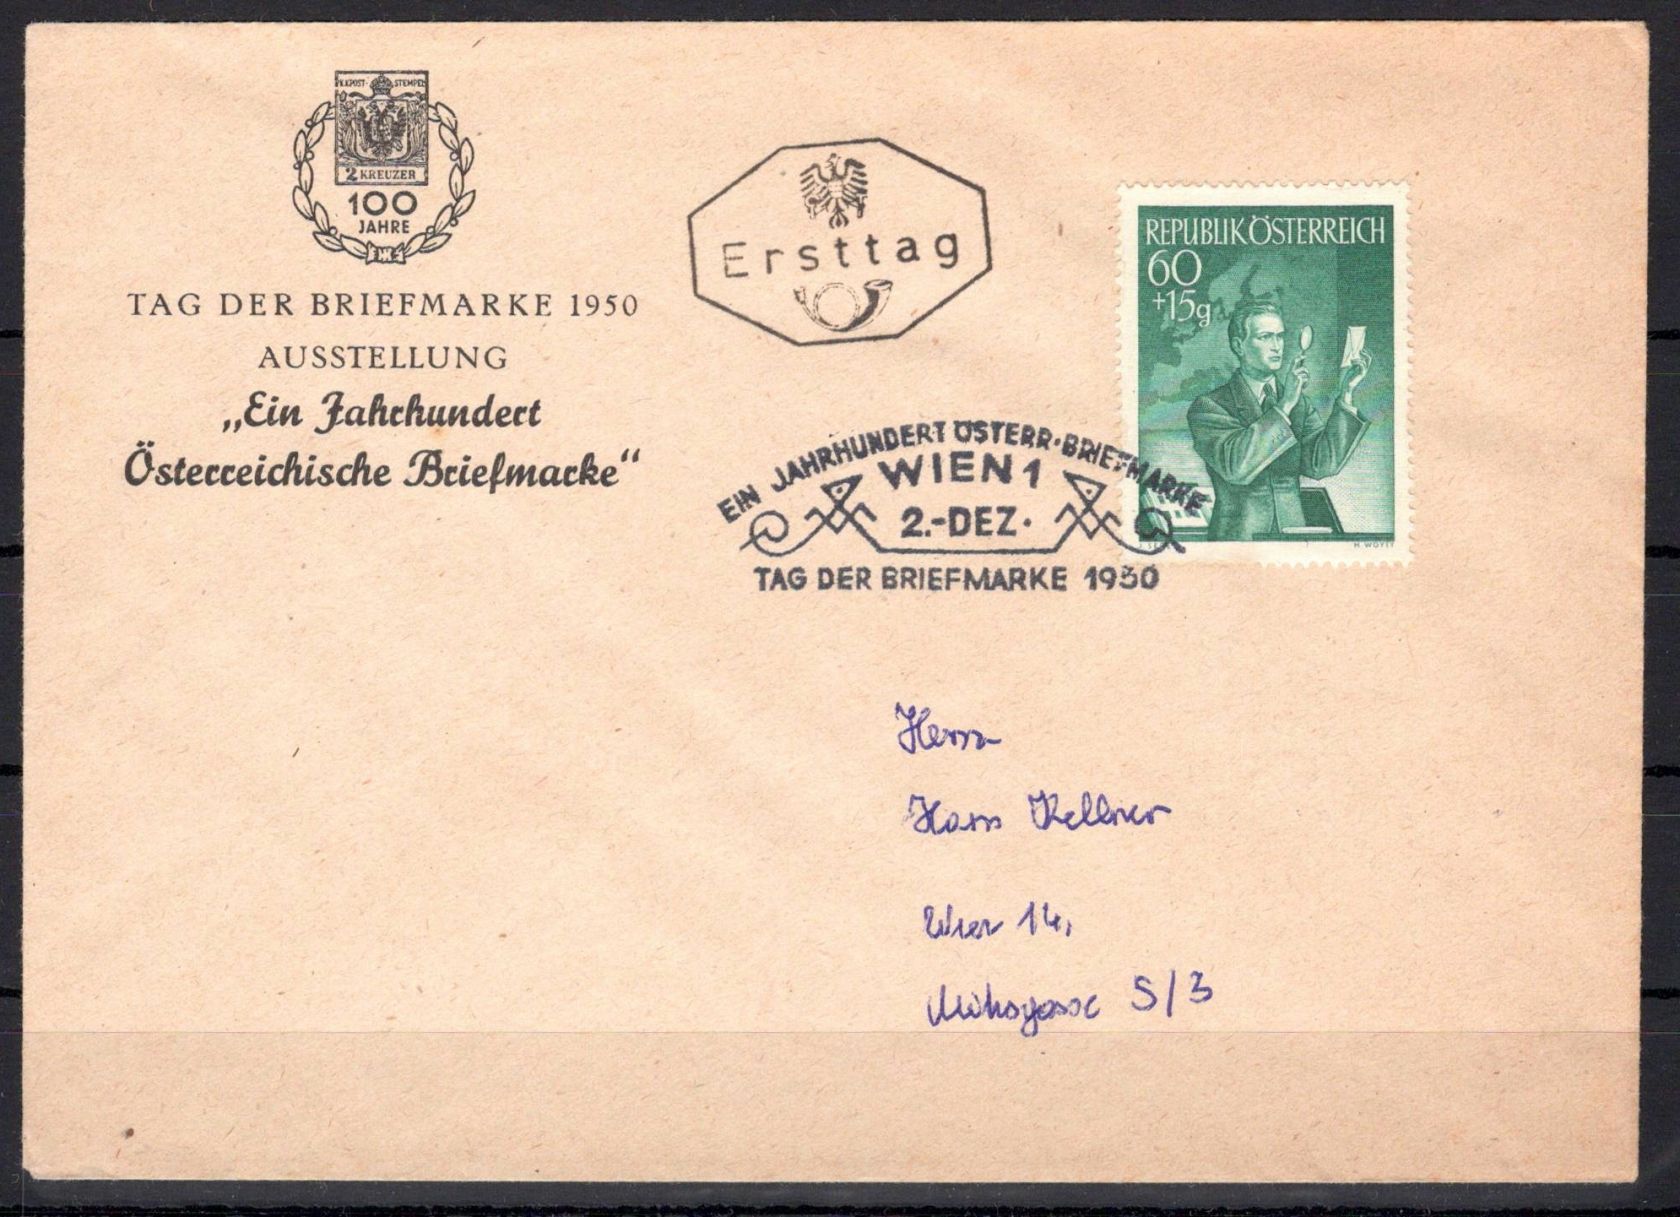 K.K.POST-STEMPEL
2 KREUZER
100
JAHRE
TAG DER BRIEFMARKE 1950
AUSSTELLUNG
„Ein Jahrhundert
Österreichische Briefmarke“
Ersttag
REPUBLIK ÖSTERREICH
60
+15g
H. WOYTY
EIN JAHRHUNDERT ÖSTERR·BRIEFMARKE
WIEN 1
2.-DEZ·
TAG DER BRIEFMARKE 1950
Herrn
Hans Kellner
Wien 14,
5/3